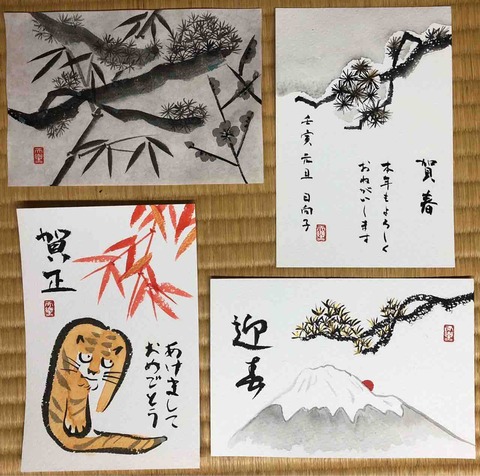 賀春
本年もよろしく
おねがいします
壬寅 元旦 日向子
賀正
あけまして
おめでとう
迎春